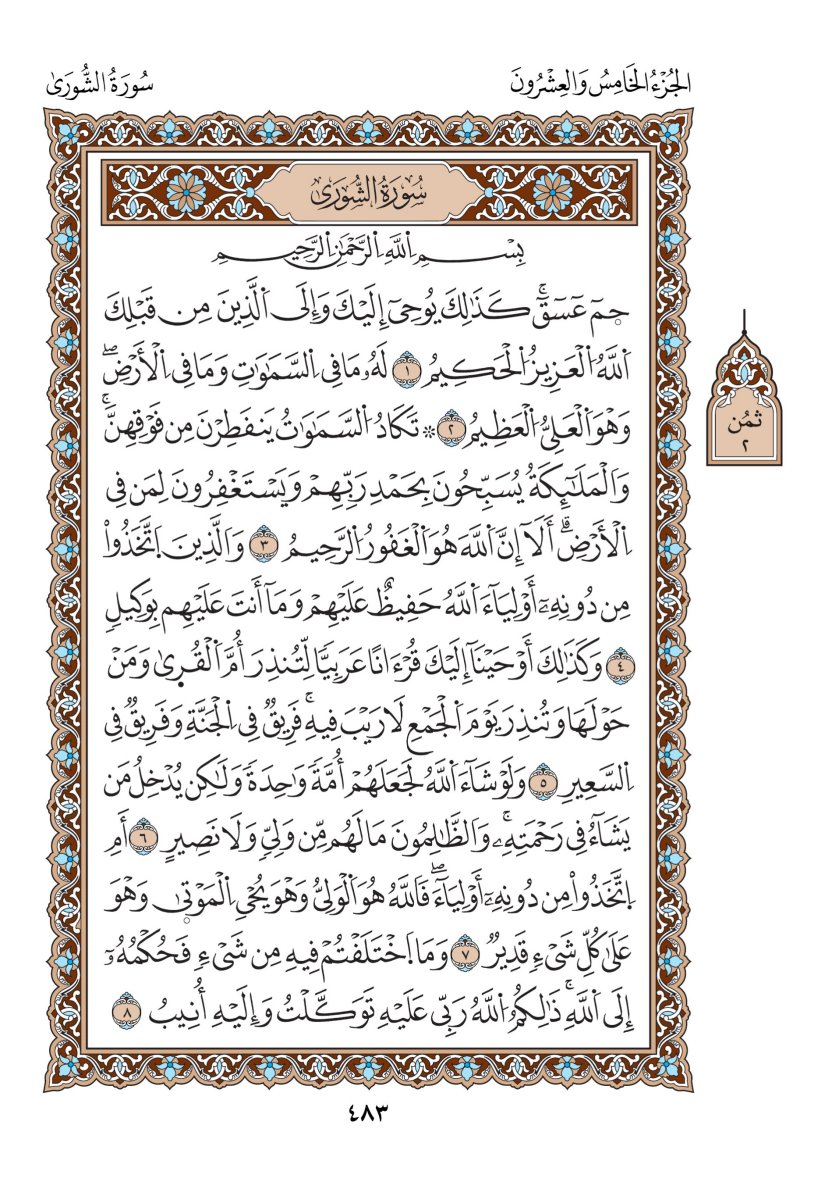 الجُزْءُ الخَامِسُ وَالعِشْرُونَ
سُورَةُ الشُّورَىٰ
سُورَةُ الشُّورَىٰ
بِسْمِ اِ۬للَّهِ اِ۬لرَّحْمَٰنِ اِ۬لرَّحِيمِ
حمِٓ عَٓسَٓقَٓۖ كَذَٰلِكَ يُوحِےٓ إِلَيْكَ وَإِلَى اَ۬لَّذِينَ مِن قَبْلِكَ
اَ۬للَّهُ اُ۬لْعَزِيزُ اُ۬لْحَكِيمُ ١ لَهُۥ مَا فِى اِ۬لسَّمَٰوَٰتِ وَمَا فِى اِ۬لْأَرْضِۖ
وَهْوَ اَ۬لْعَلِىُّ اُ۬لْعَظِيمُ ٢ ۞ تَكَادُ اُ۬لسَّمَٰوَٰتُ يَنفَطِرْنَ مِن فَوْقِهِنَّۚ
وَالْمَلَٰٓئِكَةُ يُسَبِّحُونَ بِحَمْدِ رَبِّهِمْ وَيَسْتَغْفِرُونَ لِمَن فِى
اِ۬لْأَرْضِۗ أَلَآ إِنَّ اَ۬للَّهَ هُوَ اَ۬لْغَفُورُ اُ۬لرَّحِيمُ ٣ وَالَّذِينَ اَ۪تَّخَذُواْ
مِن دُونِهِۦٓ أَوْلِيَآءَ اَ۬للَّهُ حَفِيظٌ عَلَيْهِمْ وَمَآ أَنتَ عَلَيْهِم بِوَكِيلٍ
٤ وَكَذَٰلِكَ أَوْحَيْنَآ إِلَيْكَ قُرْءَانًا عَرَبِيًّا لِّتُنذِرَ أُمَّ اَ۬لْقُرِىٰ وَمَنْ
حَوْلَهَا وَتُنذِرَ يَوْمَ اَ۬لْجَمْعِ لَا رَيْبَ فِيهِۚ فَرِيقٌ فِى اِ۬لْجَنَّةِ وَفَرِيقٌ فِى
اِ۬لسَّعِيرِ ٥ وَلَوْ شَآءَ اَ۬للَّهُ لَجَعَلَهُمْ أُمَّةً وَٰحِدَةً وَلَٰكِن يُدْخِلُ مَن
يَشَآءُ فِى رَحْمَتِهِۦۚ وَالظَّٰلِمُونَ مَا لَهُم مِّن وَلِىٍّ وَلَا نَصِيرٍ ٦ أَمِ
اِ۪تَّخَذُواْ مِن دُونِهِۦٓ أَوْلِيَآءَۖ فَاللَّهُ هُوَ اَ۬لْوَلِىُّ وَهْوَ يُحْىِ اِ۬لْمَوْتٜىٰ وَهْوَ
عَلَىٰ كُلِّ شَىْءٍ قَدِيرٌ ٧ وَمَا اَ۪خْتَلَفْتُمْ فِيهِ مِن شَىْءٍ فَحُكْمُهُۥٓ
إِلَى اَ۬للَّهِۚ ذَٰلِكُمُ اُ۬للَّهُ رَبِّى عَلَيْهِ تَوَكَّلْتُ وَإِلَيْهِ أُنِيبُ ٨
ثمُن
٢
٤٨٣